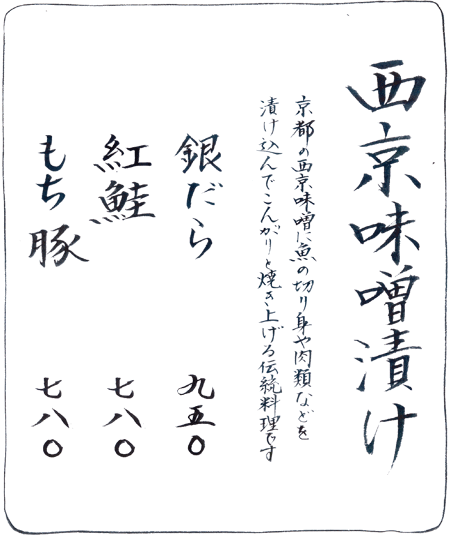 西京味噌漬け
京都の西京味噌に魚の切り身や肉類などを
漬け込んでこんがりと焼き上げる伝統料理です
銀だら 九五〇
紅鮭 七八〇
もち豚 七八〇